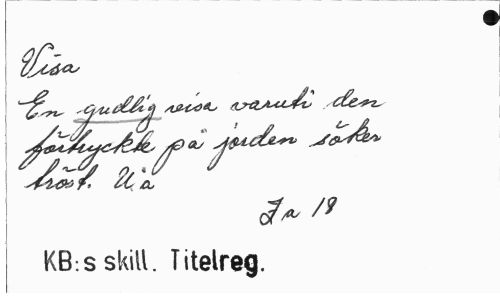 Visa
En gudlig visa varuti den
förtryckte på jorden söker
tröst. U.å
Ja 18
KB:s skill. Titelreg.